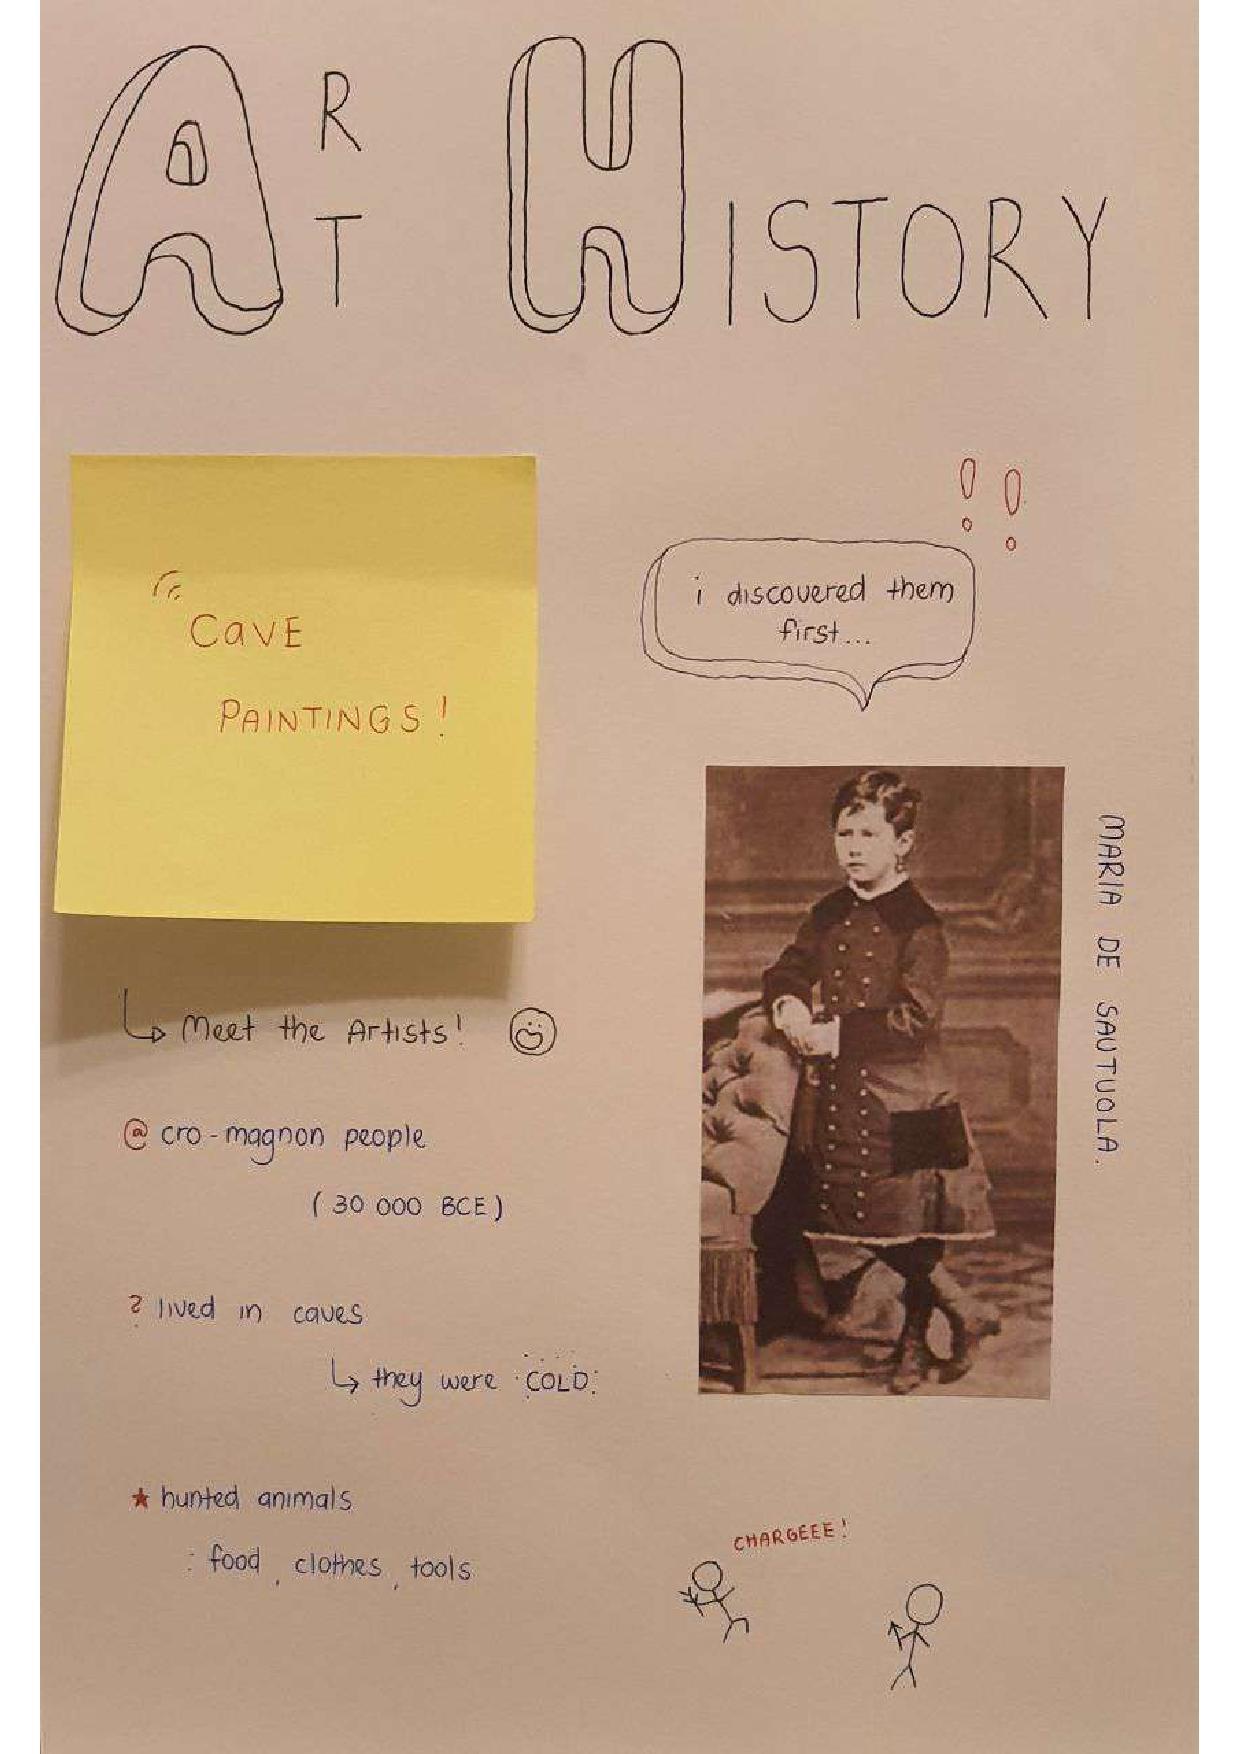 ART HISTORY
CaVE
PAINTINGS!
i discovered them
first...
MARIA DE SAUTUOLA.
Meet the Artists!
@ cro-magnon people
(30 000 BCE)
? lived in caves
↳ they were COLD.
★ hunted animals
: food, clothes, tools
CHARGEEE!